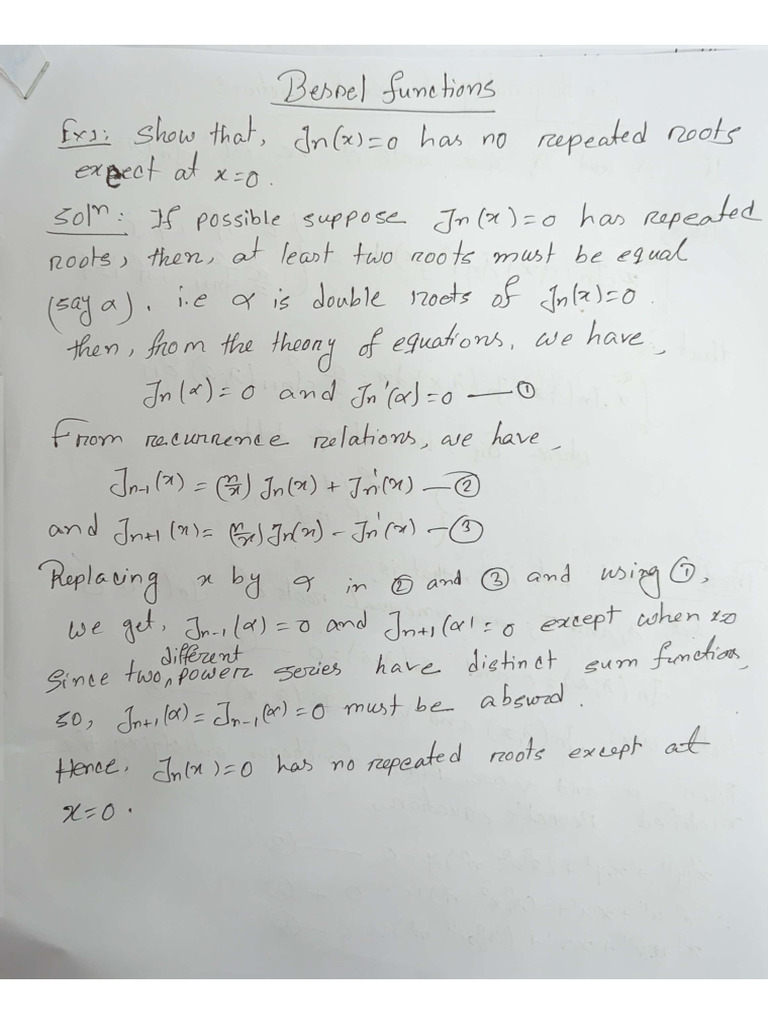 Bessel functions
Ex1: Show that, Jn(x)=0 has no repeated roots
expect at x=0.
Solⁿ: If possible suppose Jn(x)=0 has repeated
roots, then, at least two roots must be equal
(say α). i.e α is double roots of Jn(x)=0.
then, from the theory of equations, we have,
Jn(α)=0 and Jn'(α)=0 — ①
From recurrence relations, we have,
Jn-1(x) = (n/x) Jn(x) + Jn'(x) — ②
and Jn+1(x) = (n/x) Jn(x) - Jn'(x) — ③
Replacing x by α in ② and ③ and using ①,
we get, Jn-1(α)=0 and Jn+1(α)=0 except when x=0
Since two different power series have distinct sum function,
so, Jn+1(α)=Jn-1(α)=0 must be absurd.
Hence, Jn(x)=0 has no repeated roots except at
x=0.